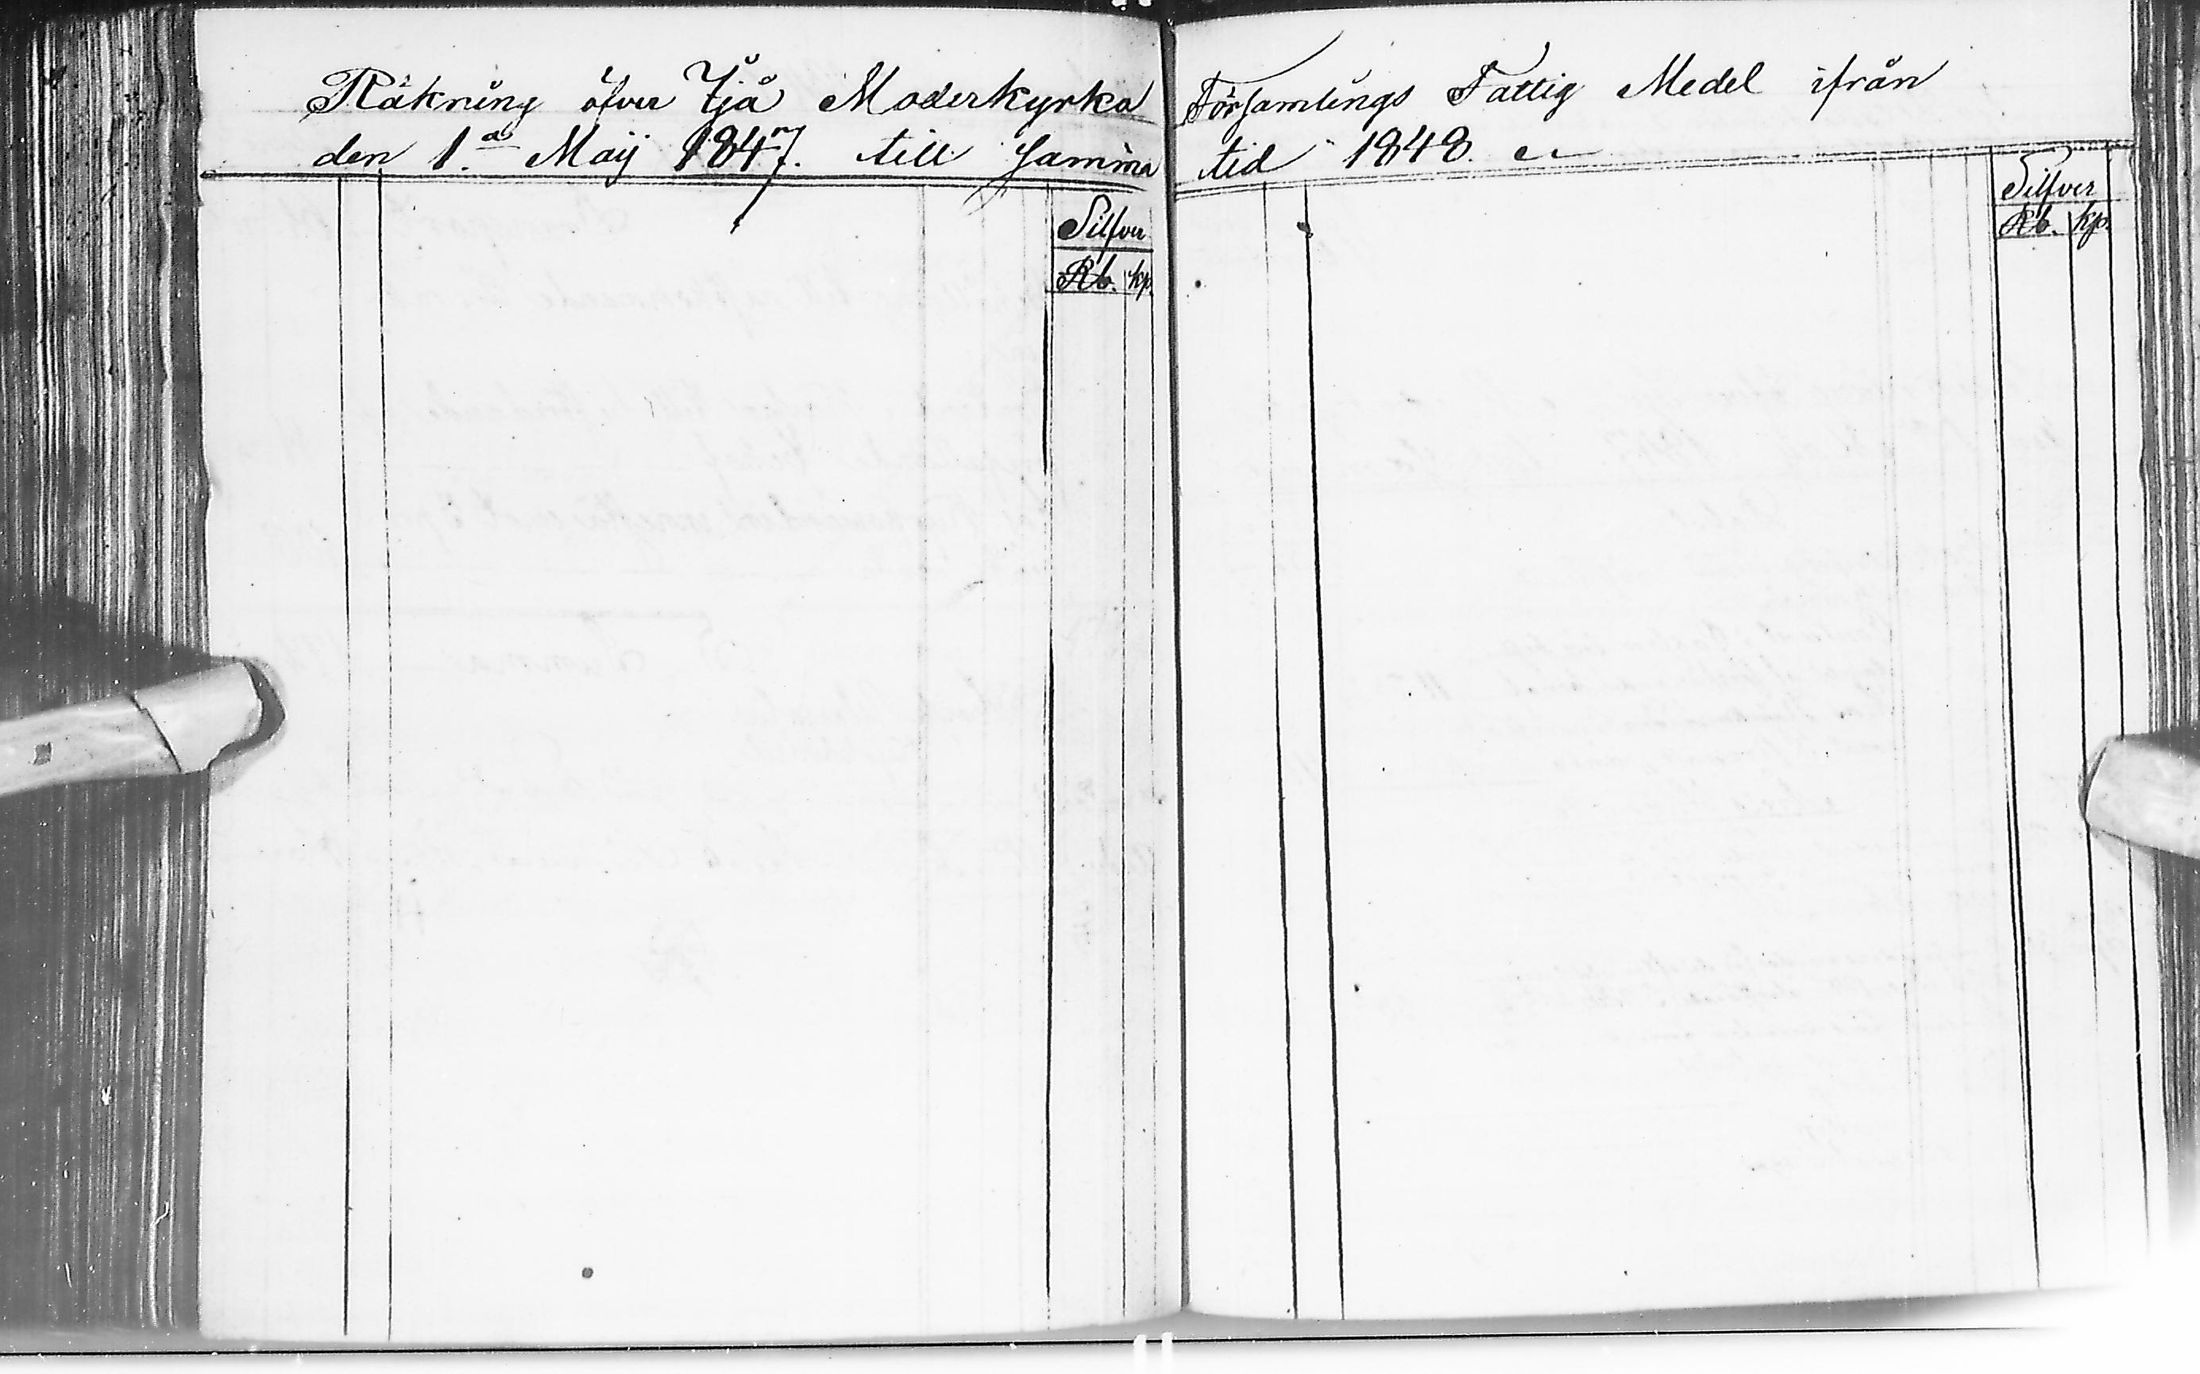 Räkning öfver Ijå Moderkyrko Församlings Fattig Medel ifrån
den 1.a Maij 1847. till samma tid 1848.
Silfver
Rb. kp.
Silfver
Rb. kp.